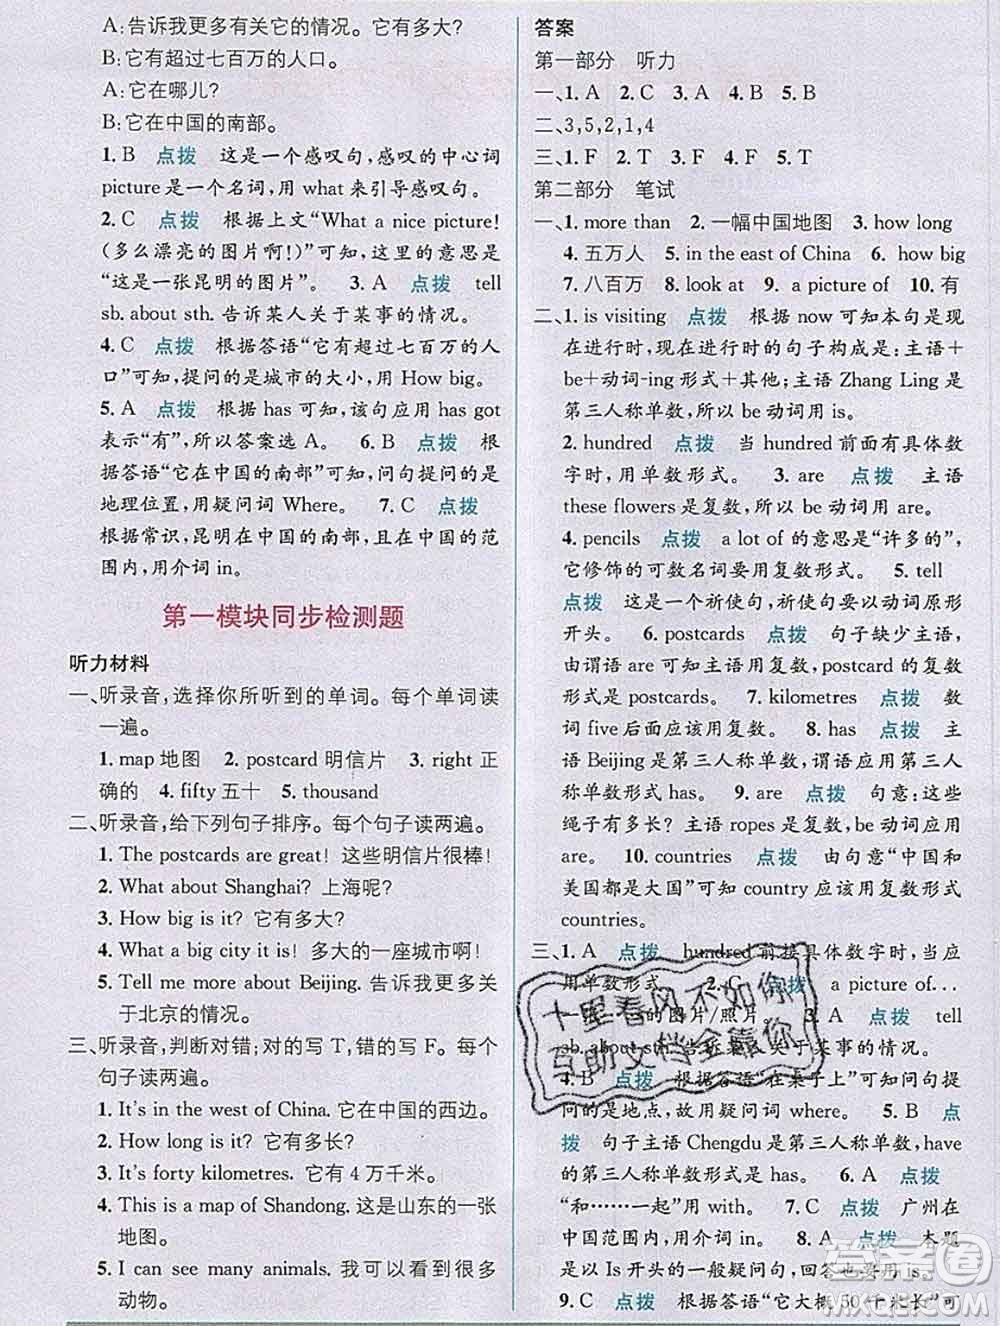 A:告诉我更多有关它的情况。它有多大?
B:它有超过七百万的人口。
A:它在哪儿?
B:它在中国的南部。
1. B 点拨 这是一个感叹句,感叹的中心词
picture是一个名词,用 what来引导感叹句。
2. C 点拨 根据上文“What a nice picture!
(多么漂亮的图片啊!)”可知,这里的意思是
“这是一张昆明的图片”。 3. A 点拨 tell
sb. about sth. 告诉某人关于某事的情况。
4. C 点拨 根据答语“它有超过七百万的人
口”可知,提问的是城市的大小,用 How big。
5. A 点拨 根据 has 可知,该句应用 has got
表示“有”,所以答案选 A。 6. B 点拨 根
据答语“它在中国的南部”可知,问句提问的是
地理位置,用疑问词 Where。 7. C 点拨
根据常识,昆明在中国的南部,且在中国的范
围内,用介词 in。
第一模块同步检测题
听力材料
一、听录音,选择你所听到的单词。每个单词读
一遍。
1. map 地图 2. postcard 明信片 3. right 正
确的 4. fifty 五十 5. thousand
二、听录音,给下列句子排序。每个句子读两遍。
1. The postcards are great! 这些明信片很棒!
2. What about Shanghai? 上海呢?
3. How big is it? 它有多大?
4. What a big city it is! 多大的一座城市啊!
5. Tell me more about Beijing. 告诉我更多关
于北京的情况。
三、听录音,判断对错;对的写 T,错的写 F。每个
句子读两遍。
1. It's in the west of China. 它在中国的西边。
2. How long is it? 它有多长?
3. It's forty kilometres. 它有 4 万千米。
4. This is a map of Shandong. 这是山东的一张
地图。
5. I can see many animals. 我可以看到很多
动物。
答案
第一部分 听力
一、1. A 2. C 3. A 4. B 5. B
二、3,5,2,1,4
三、1. F 2. T 3. F 4. F 5. T
第二部分 笔试
一、1. more than 2. 一幅中国地图 3. how long
4. 五万人 5. in the east of China 6. how big
7. 八百万 8. look at 9. a picture of 10. 有
二、1. is visiting 点拨 根据 now 可知本句是现
在进行时,现在进行时的句子构成是:主语+
be+动词-ing 形式+其他;主语 Zhang Ling 是
第三人称单数,所以 be 动词用 is。
2. hundred 点拨 当 hundred 前面有具体数
字时,用单数形式。 3. are 点拨 主语
these flowers 是复数,所以 be 动词用 are。
4. pencils 点拨 a lot of 的意思是“许多的”,
它修饰的可数名词要用复数形式。 5. tell
点拨 这是一个祈使句,祈使句要以动词原形
开头。 6. postcards 点拨 句子缺少主语,
由谓语 are 可知主语用复数,postcard 的复数
形式是 postcards。 7. kilometres 点拨 数
词 five 后面应该用复数。 8. has 点拨 主
语 Beijing 是第三人称单数,谓语动词用第三
人称单数形式 has。 9. are 点拨 句意:这些
绳子有多长? 主语 ropes 是复数,be 动词应用
are。 10. countries 点拨 由句意“中国和
美国都是大国”可知 country 应该用复数形式
countries。
三、1. A 点拨 hundred 前接具体数字时,当应
用单数形式。 2. C 点拨 a picture of...
一张……的图片/照片。
sb. about sth. 告诉某人关于某事的情况。
4. B 点拨 根据答语“在桌子上”可知问句提
问的是地点,故用疑问词 where。 5. B 点
拨 句子主语 Chengdu 是第三人称单数,have
的第三人称单数形式是 has。 6. A 点拨
“和……一起”用 with。 7. C 点拨 广州在
中国范围内,用介词 in。 8. A 点拨 本题
是以 Is 开头的一般疑问句,回答也要用 is。
9. C 点拨 根据答语“它大概 50 千米长”可
十里春风不如你
互助文档全靠你
答案圈